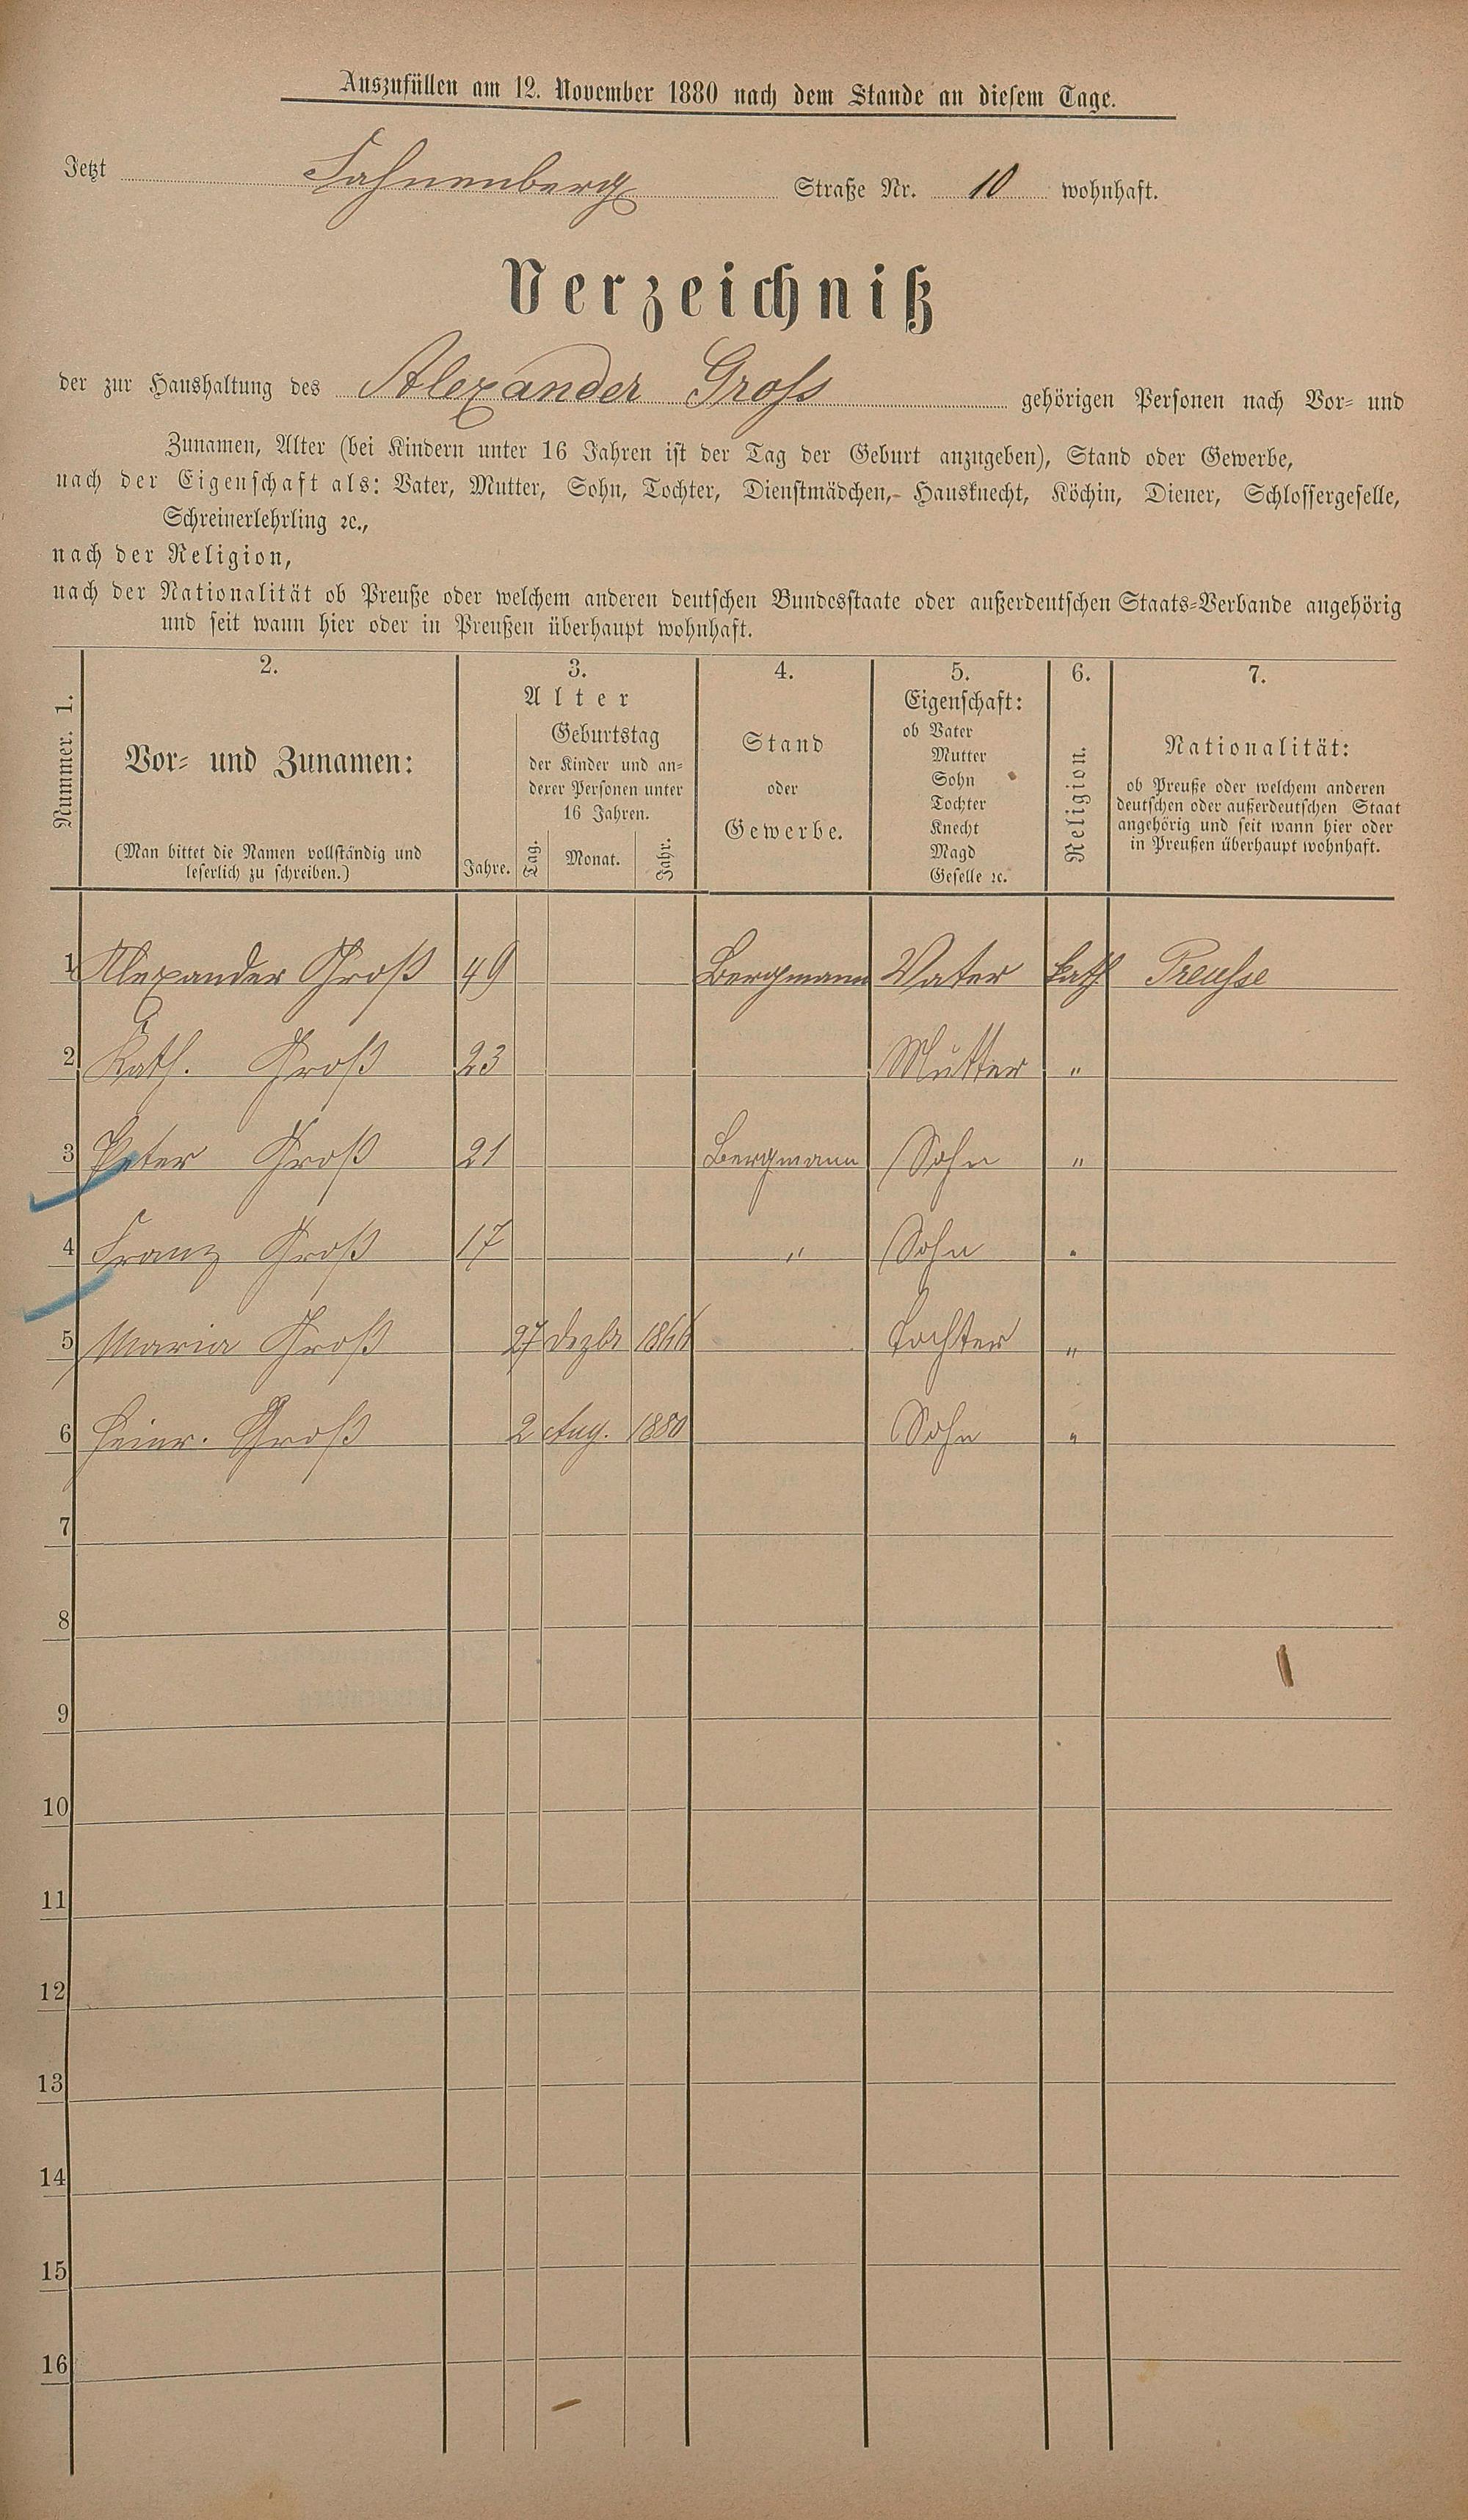 Auszufüllen am 12. November 1880 nach dem Stande an diesem Tage.
Jetzt Hahnenberg Straße Nr. 10 wohnhaft.
Verzeichniß
der zur Haushaltung des Alexander Gross gehörigen Personen nach Vor- und
Zunamen, Alter (bei Kindern unter 16 Jahren ist der Tag der Geburt anzugeben), Stand oder Gewerbe,
nach der Eigenschaft als: Vater, Mutter, Sohn, Tochter, Dienstmädchen,- Hausknecht, Köchin, Diener, Schlossergeselle,
Schreinerlehrling ꝛc.,
nach der Religion,
nach der Nationalität ob Preuße oder welchem anderen deutschen Bundesstaate oder außerdeutschen Staats-Verbande angehörig
und seit wann hier oder in Preußen überhaupt wohnhaft.
Nummer. 1.
2.
Vor- und Zunamen:
(Man bittet die Namen vollständig und
leserlich zu schreiben.)
3.
Alter
Jahre.
Geburtstag
der Kinder und an-
derer Personen unter
16 Jahren.
Tag. Monat. Jahr.
4.
Stand
oder
Gewerbe.
5.
Eigenschaft:
ob Vater
Mutter
Sohn
Tochter
Knecht
Magd
Geselle ꝛc.
6.
Religion.
7.
Nationalität:
ob Preuße oder welchem anderen
deutschen oder außerdeutschen Staat
angehörig und seit wann hier oder
in Preußen überhaupt wohnhaft.
1 Alexander Groß 49 Bergmann Vater kath Preusse
2 Kath. Groß 23 Mutter "
3 Peter Groß 21 Bergmann Sohn "
4 Franz Groß 17 " Sohn "
5 Maria Groß 27 Dezbr 1866 Tochter "
6 Heinr. Groß 2 Aug. 1880 Sohn "
7
8
9
10
11
12
13
14
15
16